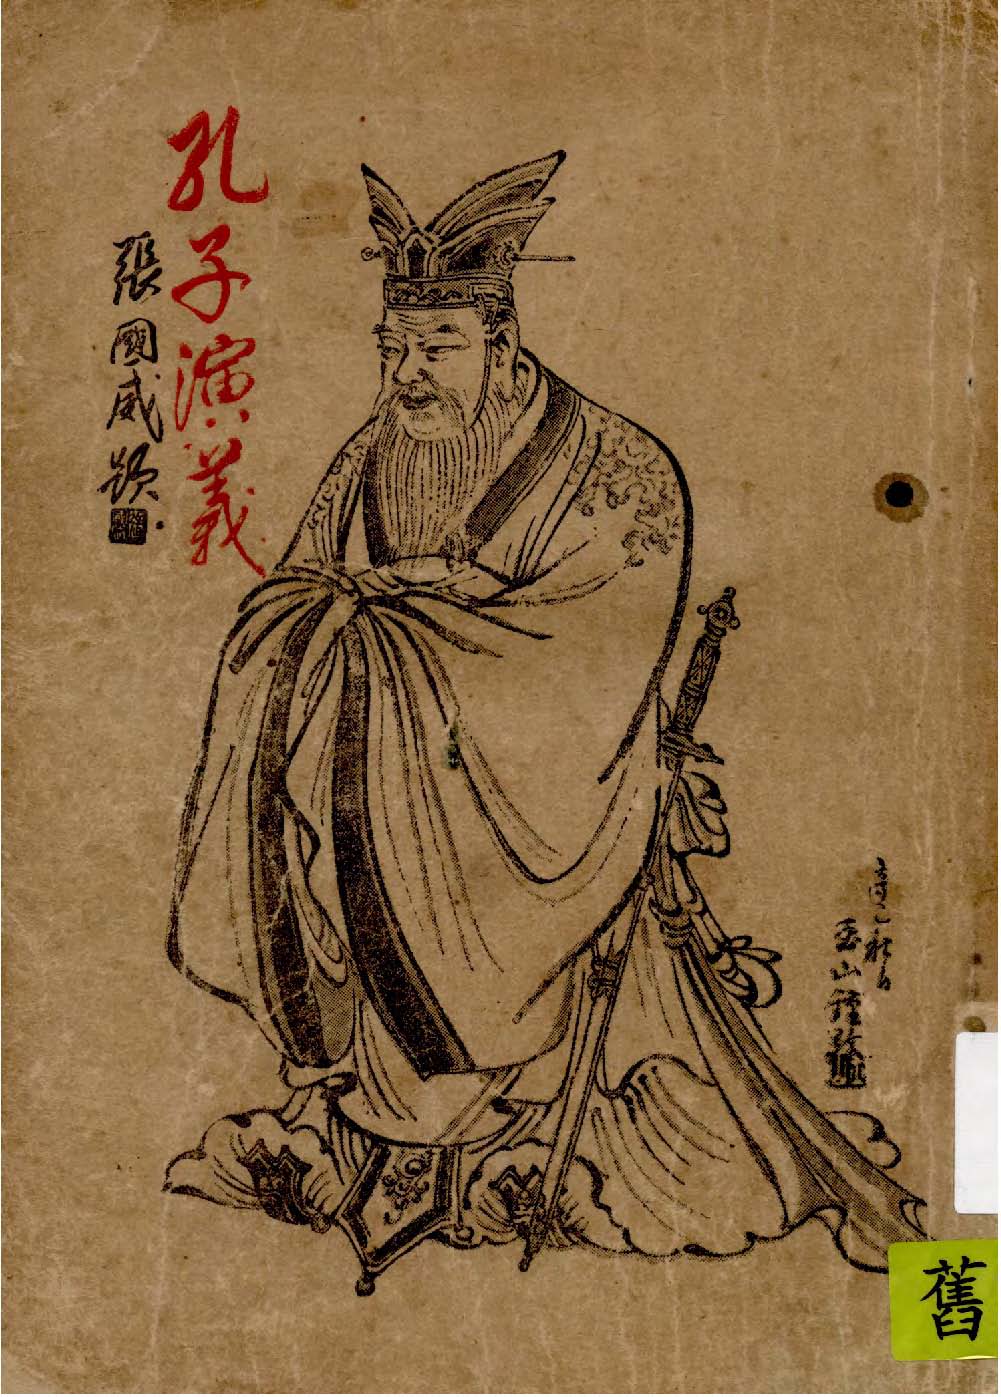 孔子演義
張國威題
玉山
舊